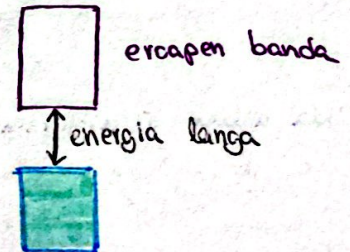 eroapen banda
energia langa